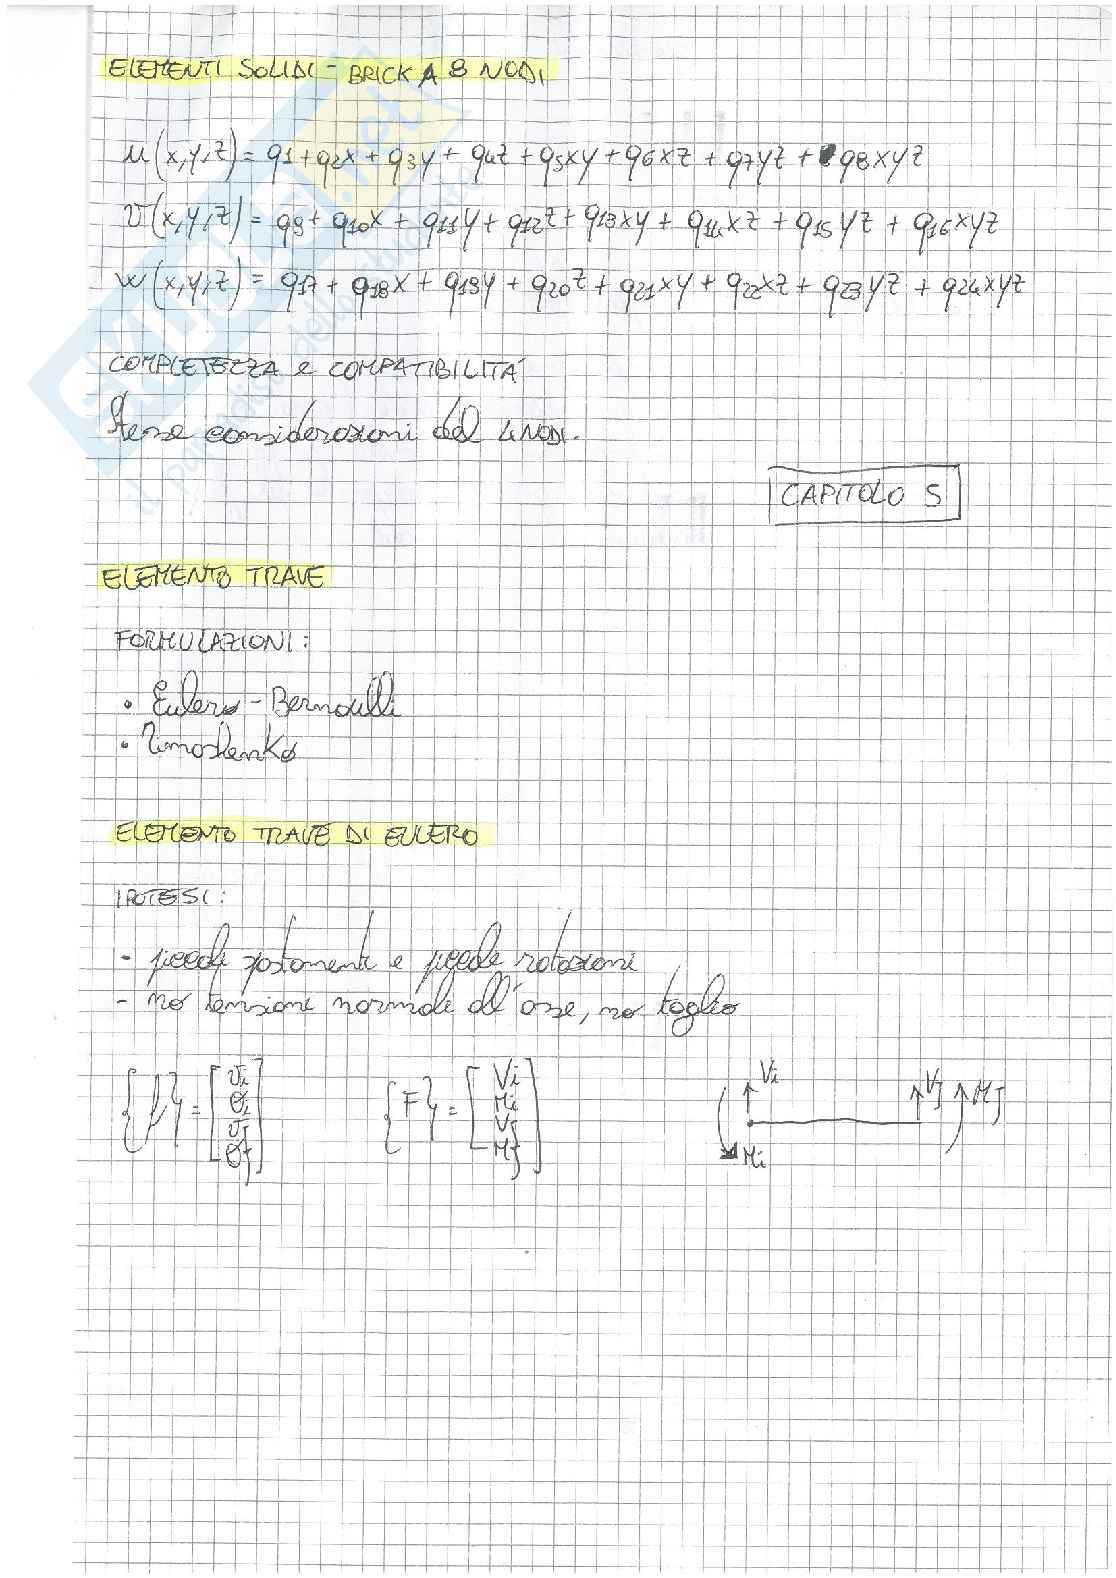 ELEMENTI SOLIDI - BRICK A 8 NODI
u(x,y,z) = q1 + q2x + q3y + q4z + q5xy + q6xz + q7yz + q8xyz
v(x,y,z) = q9 + q10x + q11y + q12z + q13xy + q14xz + q15yz + q16xyz
w(x,y,z) = q17 + q18x + q19y + q20z + q21xy + q22xz + q23yz + q24xyz
COMPLETEZZA e COMPATIBILITÀ
Stesse considerazioni del 4 NODI.
CAPITOLO 5
ELEMENTO TRAVE
FORMULAZIONI:
• Eulero - Bernoulli
• Timoshenko
ELEMENTO TRAVE DI EULERO
IPOTESI:
- piccoli spostamenti e piccole rotazioni
- no tensione normale all'asse, no taglio
{f} = [vi θi vj θj]
{F} = [Vi Mi Vj Mj]
Vi Vj Mj
Mi
skuola.net
il paradiso dello studente